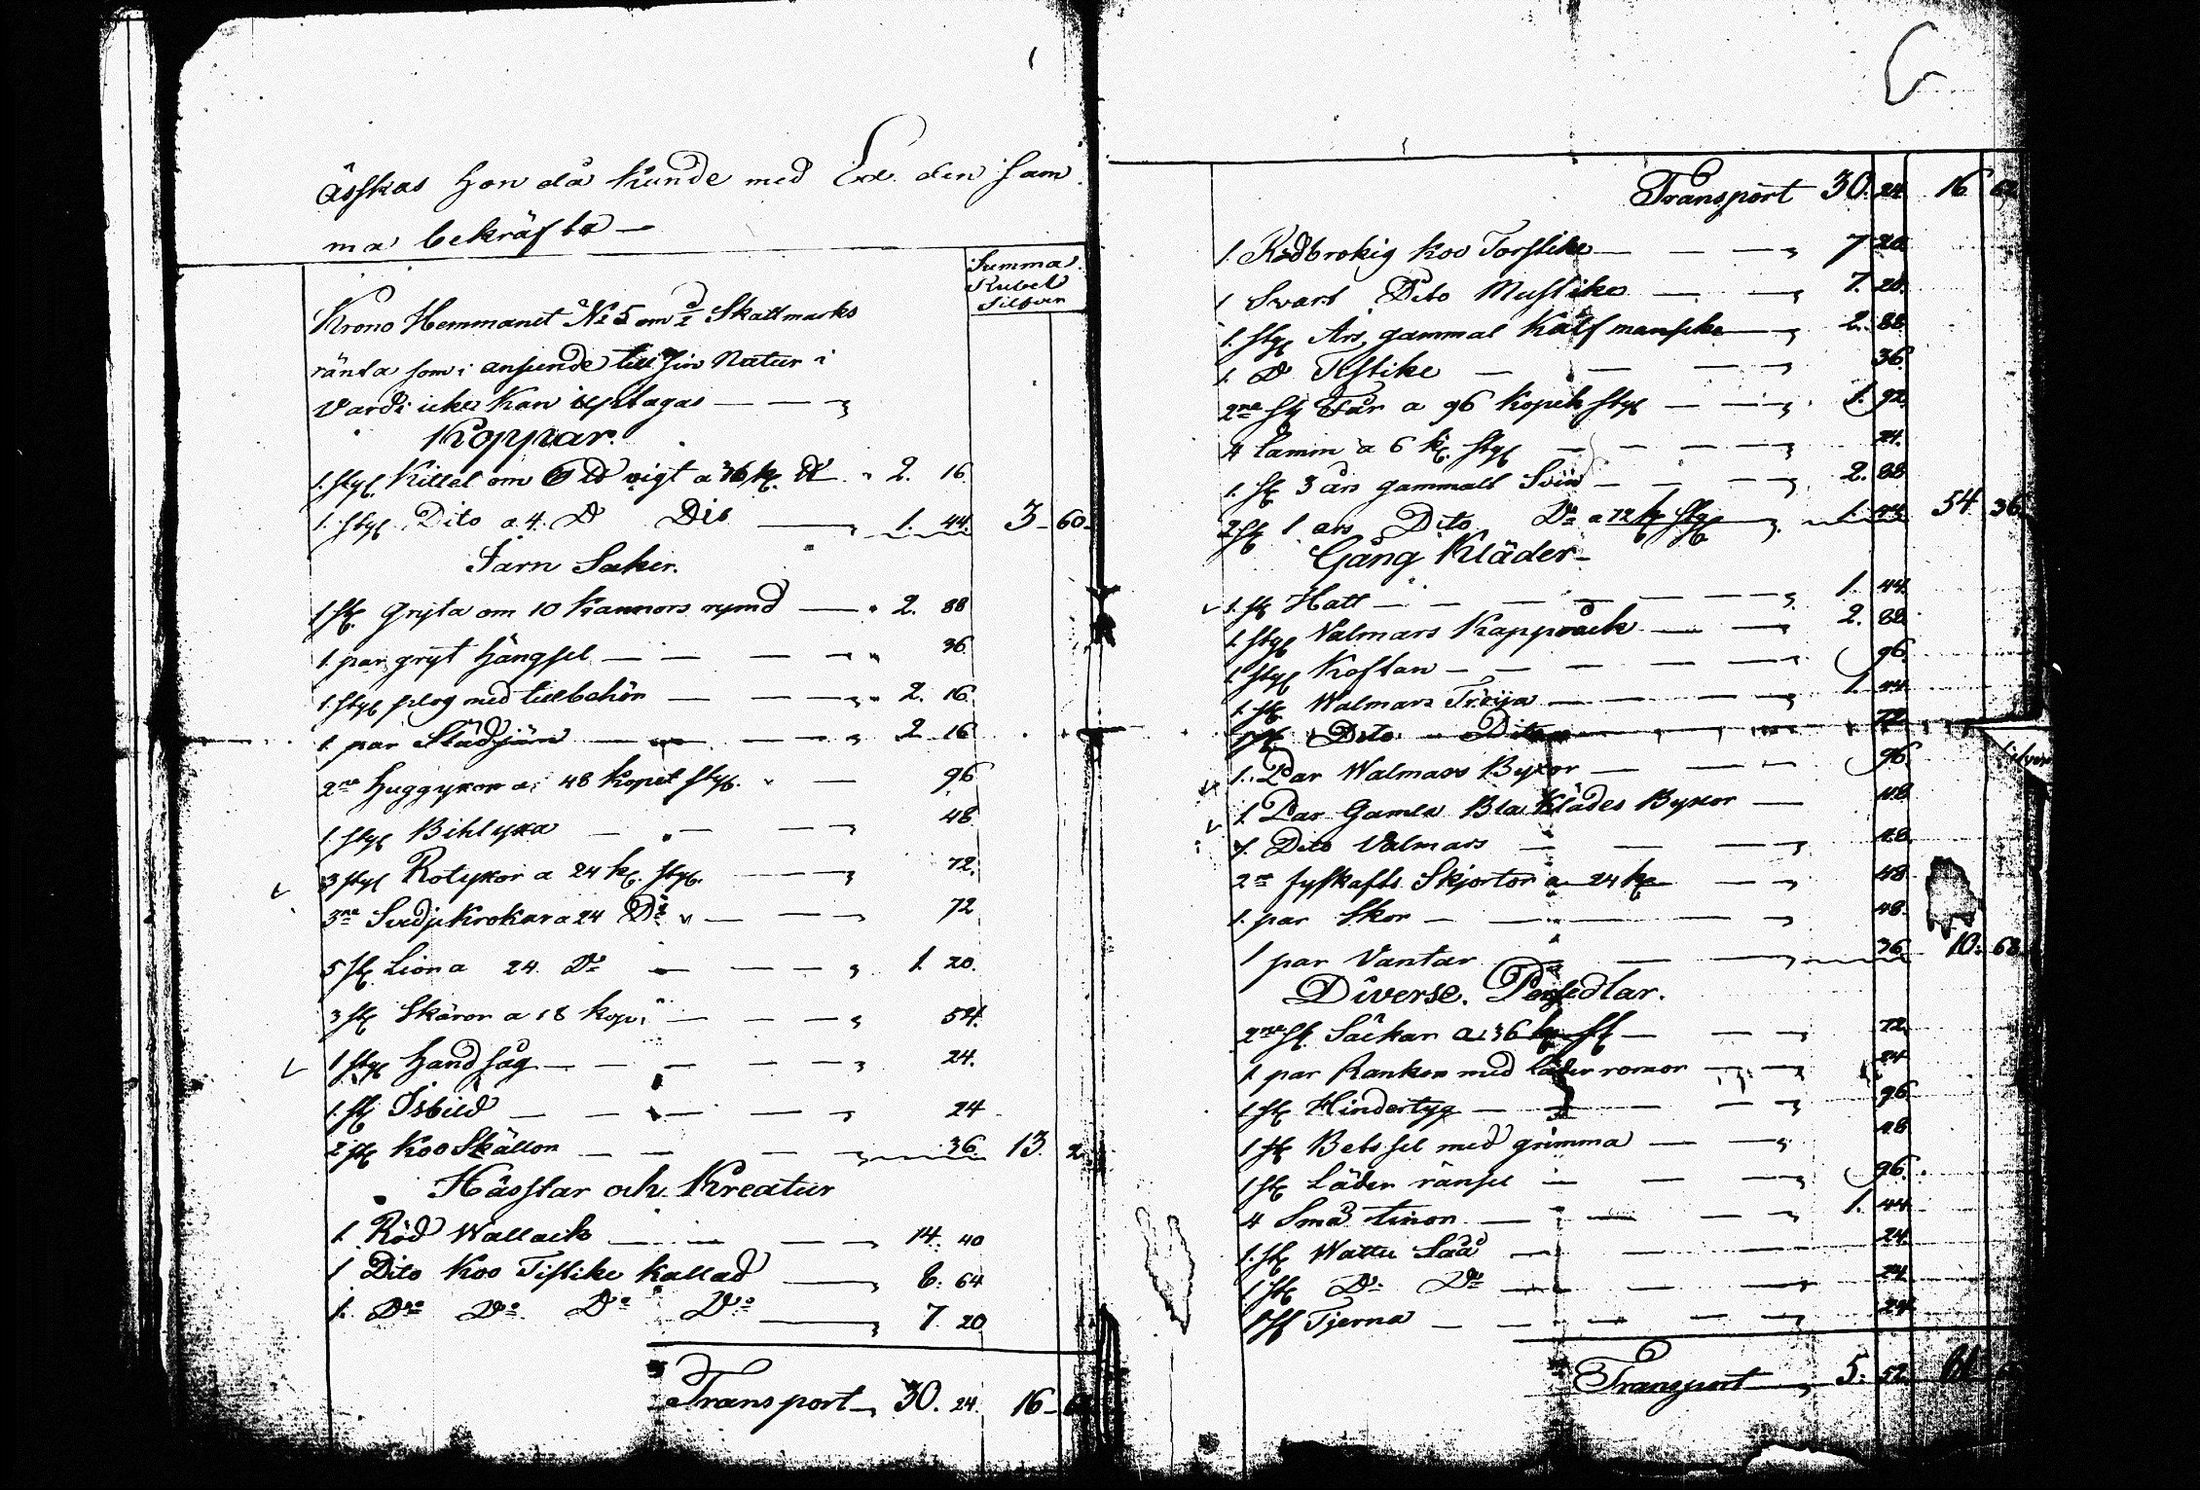 äsfkas hon då kunde med Ed den sam
ma bekräfta —
Summa
Rubel
Silfver
Krono Hemmanet No 5 om 1/2 Skattmarks
ränta som i anseende till sin Natur i
värde icke kan upptagas — — —
Koppar.
1. styk. Kittel om 6 ℔ vigt a 36 k. ℔ 2. 16
1. styk Dito a 4. D Dito — 1. 44. 3 — 60
Järn Saker.
1 st. Gryta om 10 Kannors rymd — 2. 88
1. par gryt hängsel — — — 36
1. styk plog med tillbehör — — — 2. 16
1. par Slädjärn — — — 2 16
2ne Huggyxor a 48 Kopek styk. — 96
1 styk Bihlyxa — — — 48
3 styk Rotyxor a 24 k. styk. — — 72.
3ne Svedje Krokar a 24 Do — — 72
5 st Lior a 24 Do — — — 1. 20.
3 st Skäror a 18 kop: — — — 54.
1 styk handsåg — — — — 24.
1. st Isbild — — — — 24
2 st Koo Skällor — — — 36 13 2
Hästar och Kreatur
1. Röd Wallack — — — 14. 40
1 Dito Koo Tistike kallad — 8. 64
1. Do Do Do Do — 7 20
Transport — 30. 24 16 —
Transport 30. 24 16 62
1. Rödbrokig Koo Torstike — — — 7 20
1 Svart Dito Mustike — — 7. 20.
1. styk Års gammal Kalf manfike — 2. 88
1. D Tistike — — — 36.
2ne st Får a 96 Kopek styk — — 1. 92.
4 Lamm a 6 k. styk — — — 24.
1. st 3 års gammalt Svin — — 2. 88
2 st 1 års Dito Do a 72 k styk 1. 44 54 36
Gång Kläder —
1. st Hatt — — — — — 1. 44.
1. styk Valmars Kapprock — — 2. 88
1 styk Koftan — — — — 96.
1. st. Walmars Tröija — — — 1. 44
1 st Dito Dito — 72
1. Par Walmars Byxor — — — 96.
1 Par Gamla Bla Klädes Byxor — 48
1. Dito Valmars — — — 48
2ne syskafts Skjortor a 24 k — — 48
1. par Skor — — — — 48.
1 par Vantar — — — 36 10. 68
Diverse. Persedlar.
2ne st. Säckar a 36 k st — — 72
1. par Rankor med läder romor — — 24
1 st Hindertyg — — — — 96
1 st Betssel med grimma — — 48
1 st Läder ränsel — — — 96.
4 Små tinor — — — 1. 44
1. st Wattu Såå — — — 24.
1 st Do Do — — — 24
1 st Tjerna — — — — 24
Transport — 5. 52 81